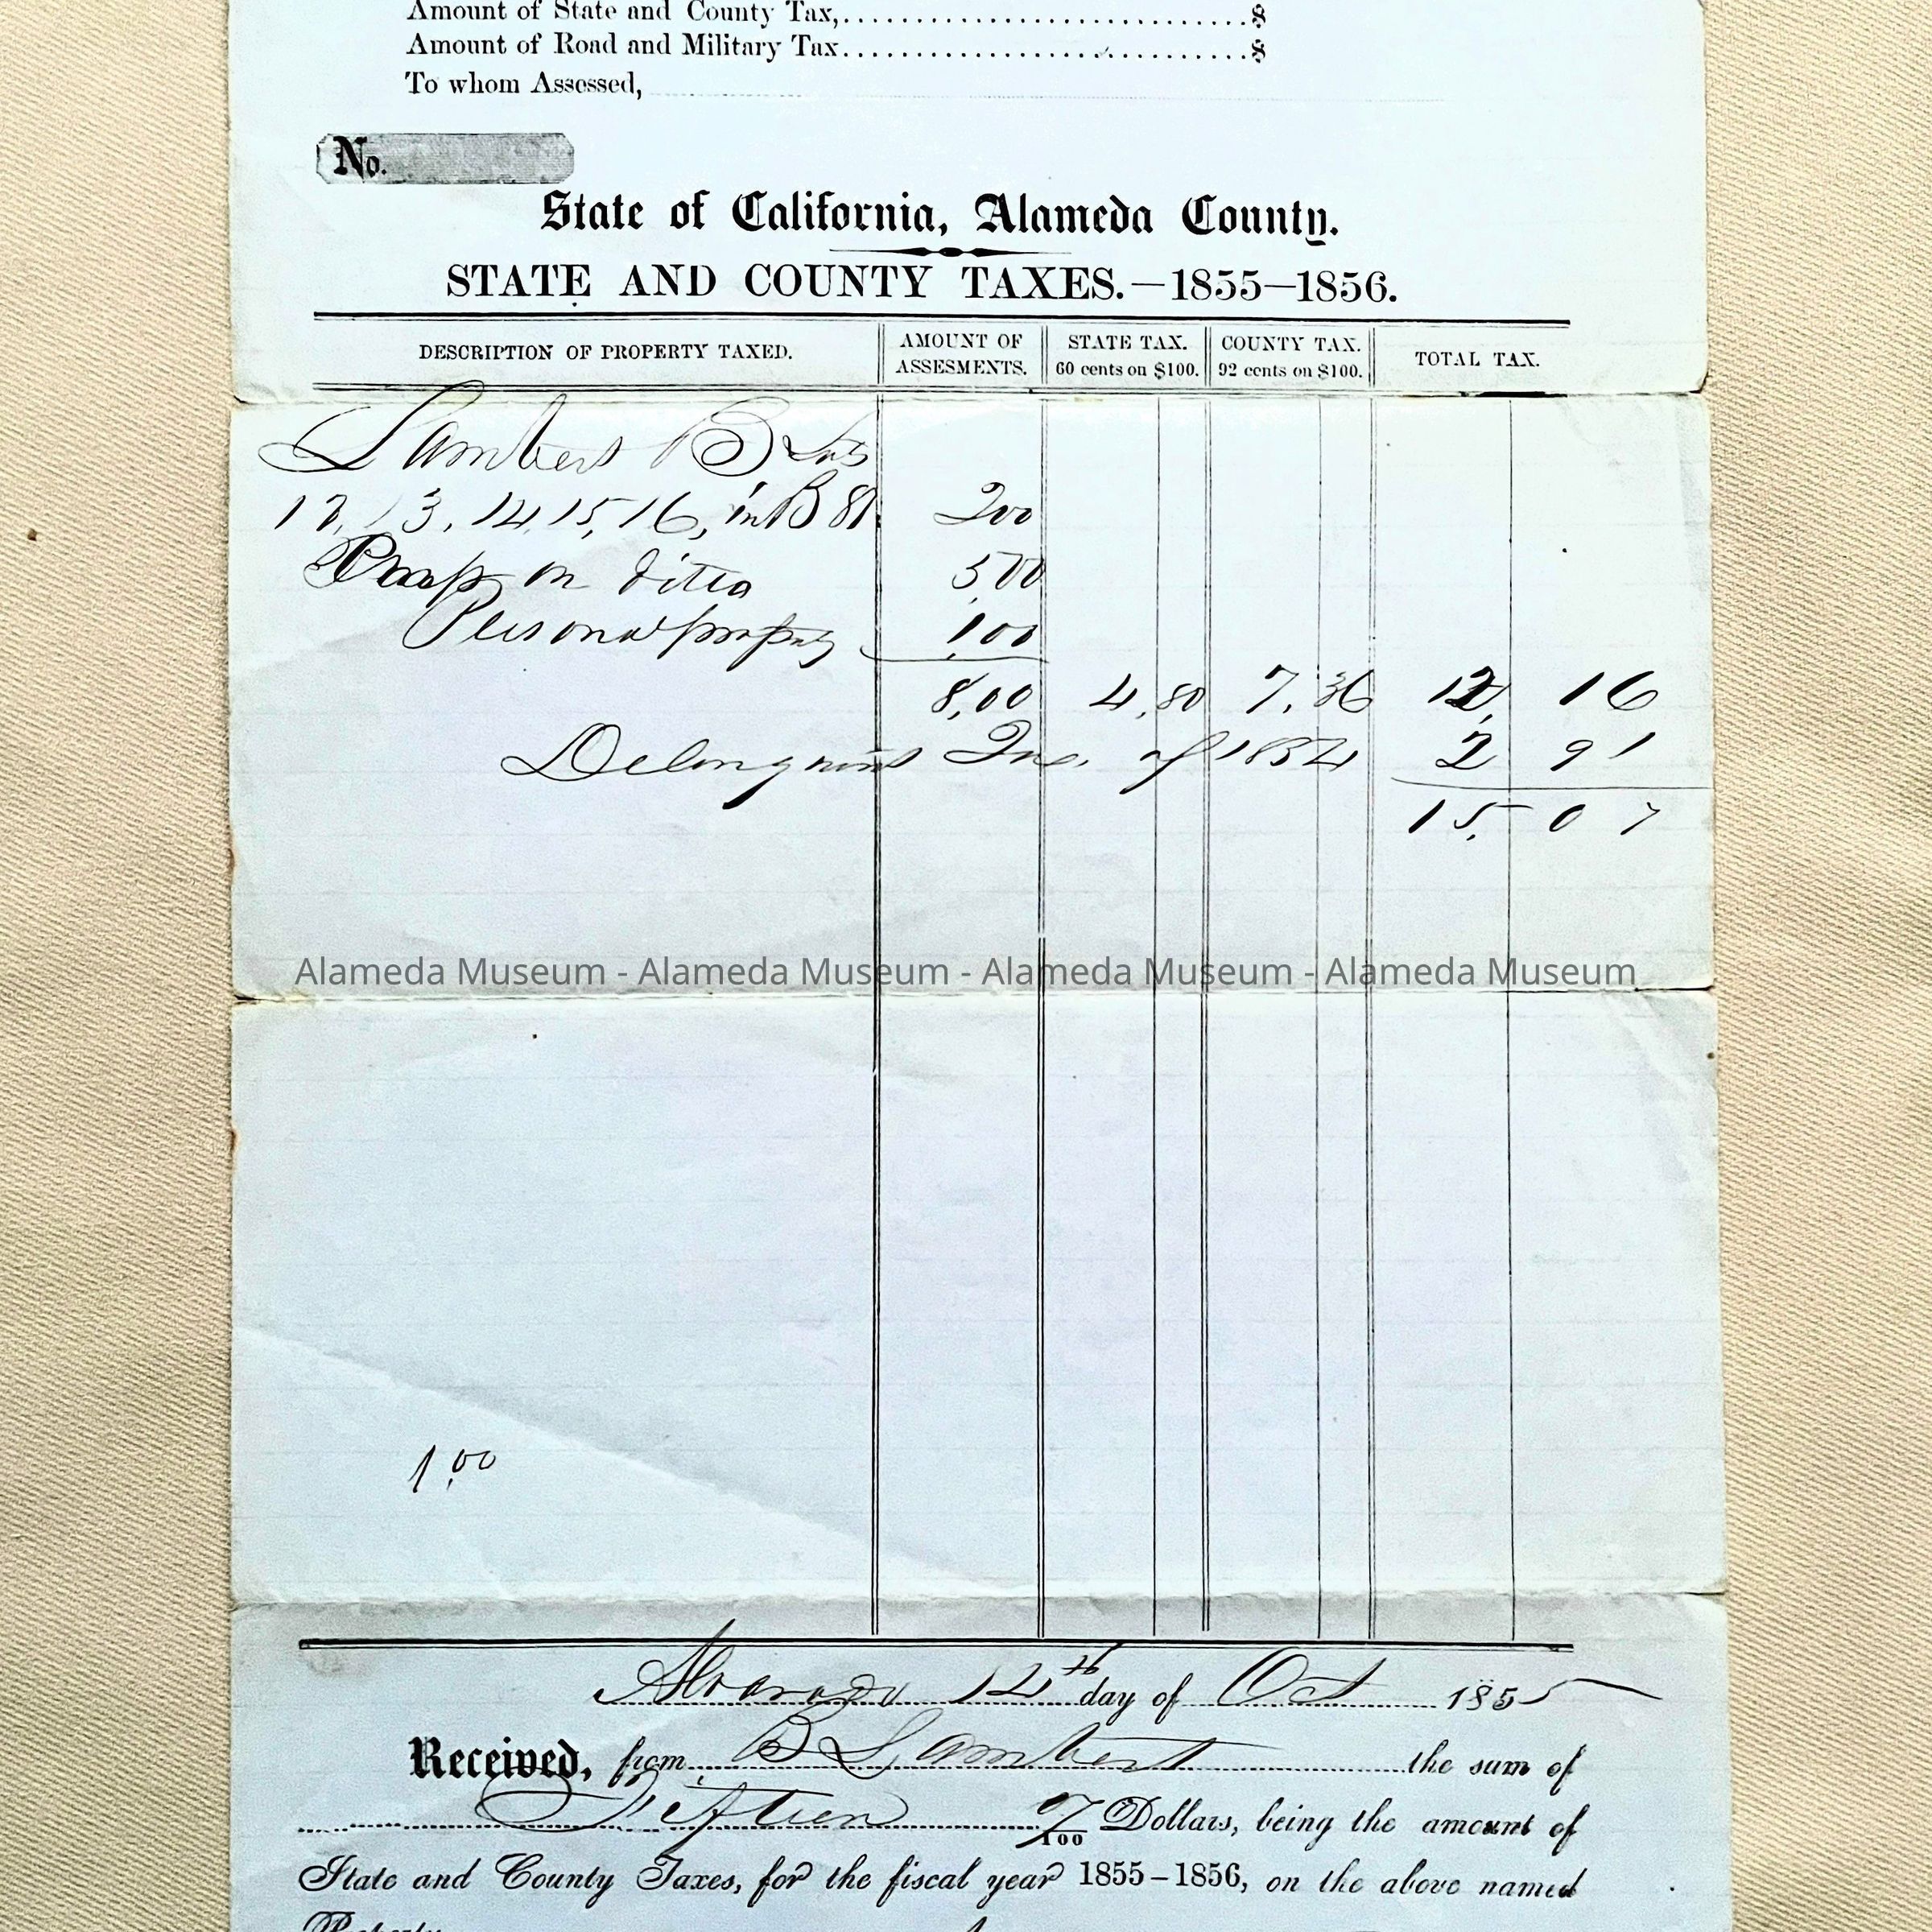 Amount of State and County Tax,........................................$
Amount of Road and Military Tax........................................$
To whom Assessed,
No.
State of California, Alameda County.
STATE AND COUNTY TAXES.—1855—1856.
DESCRIPTION OF PROPERTY TAXED. AMOUNT OF ASSESMENTS. STATE TAX. 60 cents on $100. COUNTY TAX. 92 cents on $100. TOTAL TAX.
Lambert B Lots
12, 13, 14, 15, 16, in B 81 200
on ditto 500
Personal property 100
8,00 4,80 7,36 12, 16
Delinquent of 1854 2 91
15, 07
Alameda Museum - Alameda Museum - Alameda Museum - Alameda Museum
1,00
Alvarado 12th day of Oct 1855
Received, from B Lambert the sum of
Fifteen 7/100 Dollars, being the amount of
State and County Taxes, for the fiscal year 1855-1856, on the above named
Property